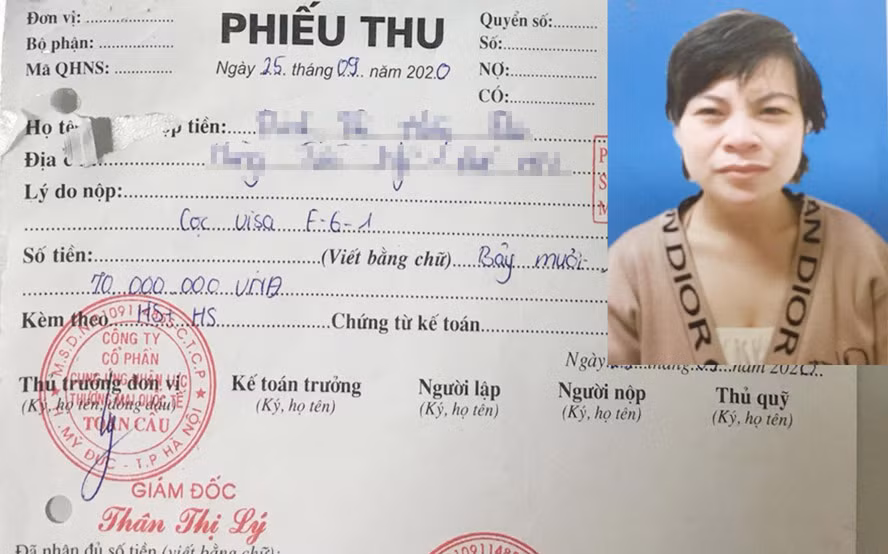 Đơn vị:
PHIẾU THU
Quyển số:
Bộ phận:
Số:
Mã QHNS:
Ngày 25 tháng 09 năm 2020
NỢ:
CÓ:
Họ tê p tiền:
Địa
Lý do nộp:
Cọc visa F-6-1
Số tiền: (Viết bằng chữ) Bảy mươi
70.000.000 VNĐ
Kèm theo HS+ HS Chứng từ kế toán
Ngày tháng 09 năm 2020
Thủ trưởng đơn vị
(Ký, họ tên, đóng dấu)
Kế toán trưởng
(Ký, họ tên)
Người lập
(Ký, họ tên)
Người nộp
(Ký, họ tên)
Thủ quỹ
(Ký, họ tên)
CÔNG TY
CỔ PHẦN
CUNG ỨNG NHÂN LỰC
THƯƠNG MẠI QUỐC TẾ
TOÀN CẦU
H. MỸ ĐỨC - T.P HÀ NỘI
GIÁM ĐỐC
Thân Thị Lý
Đã nhận đủ số tiền (viết bằng chữ):
DIOR
AN DIOR